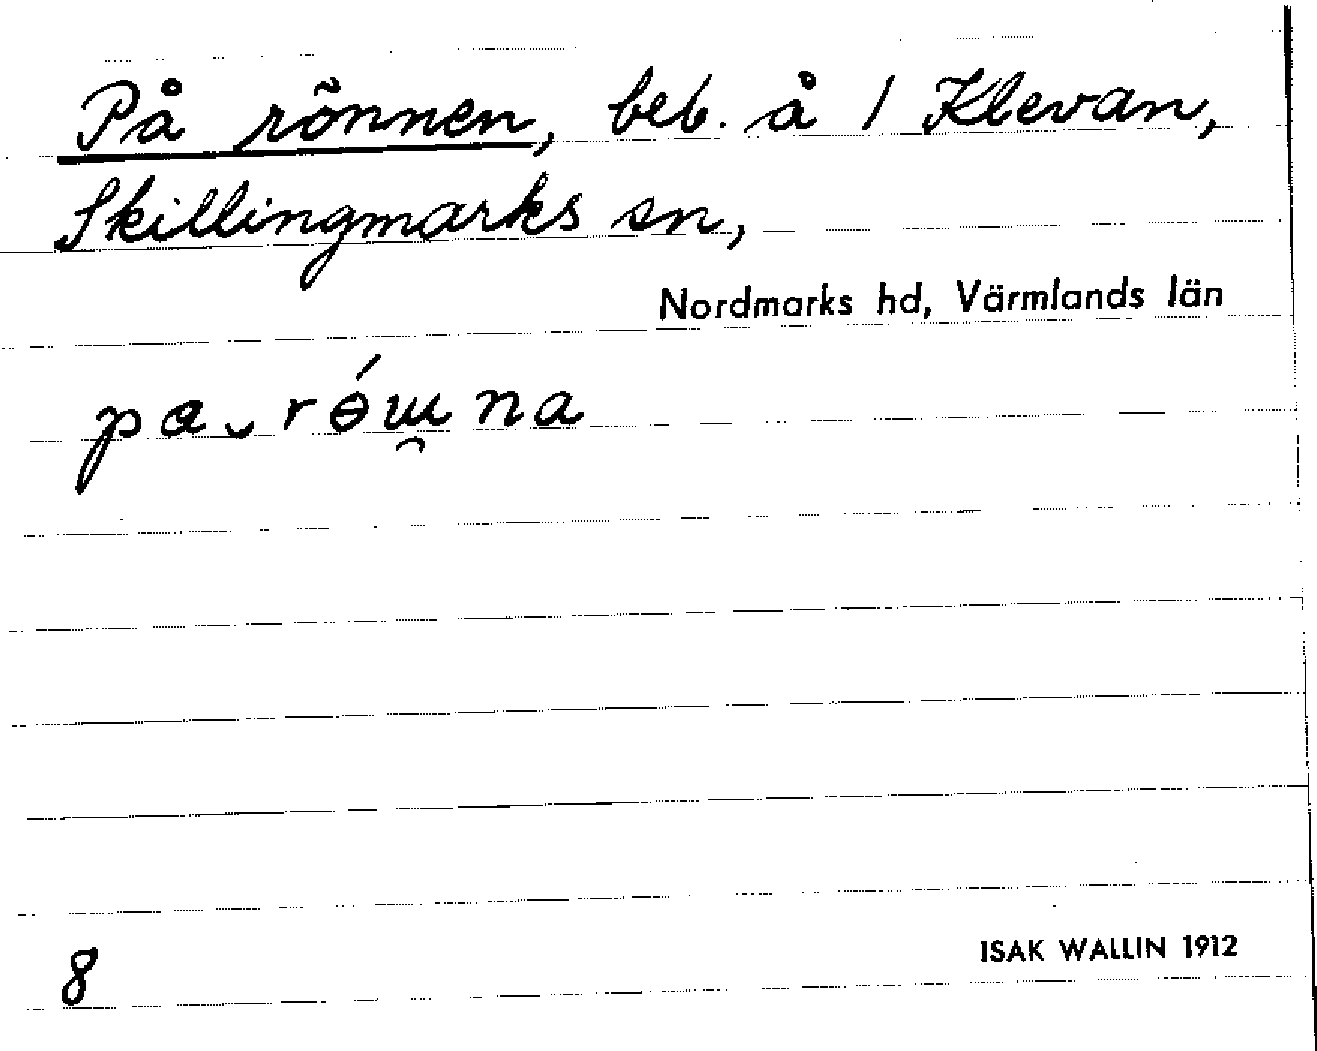 På rönnen, beb. å 1 Klevan,
Skillingmarks sn,
Nordmarks hd, Värmlands län
8
ISAK WALLIN 1912